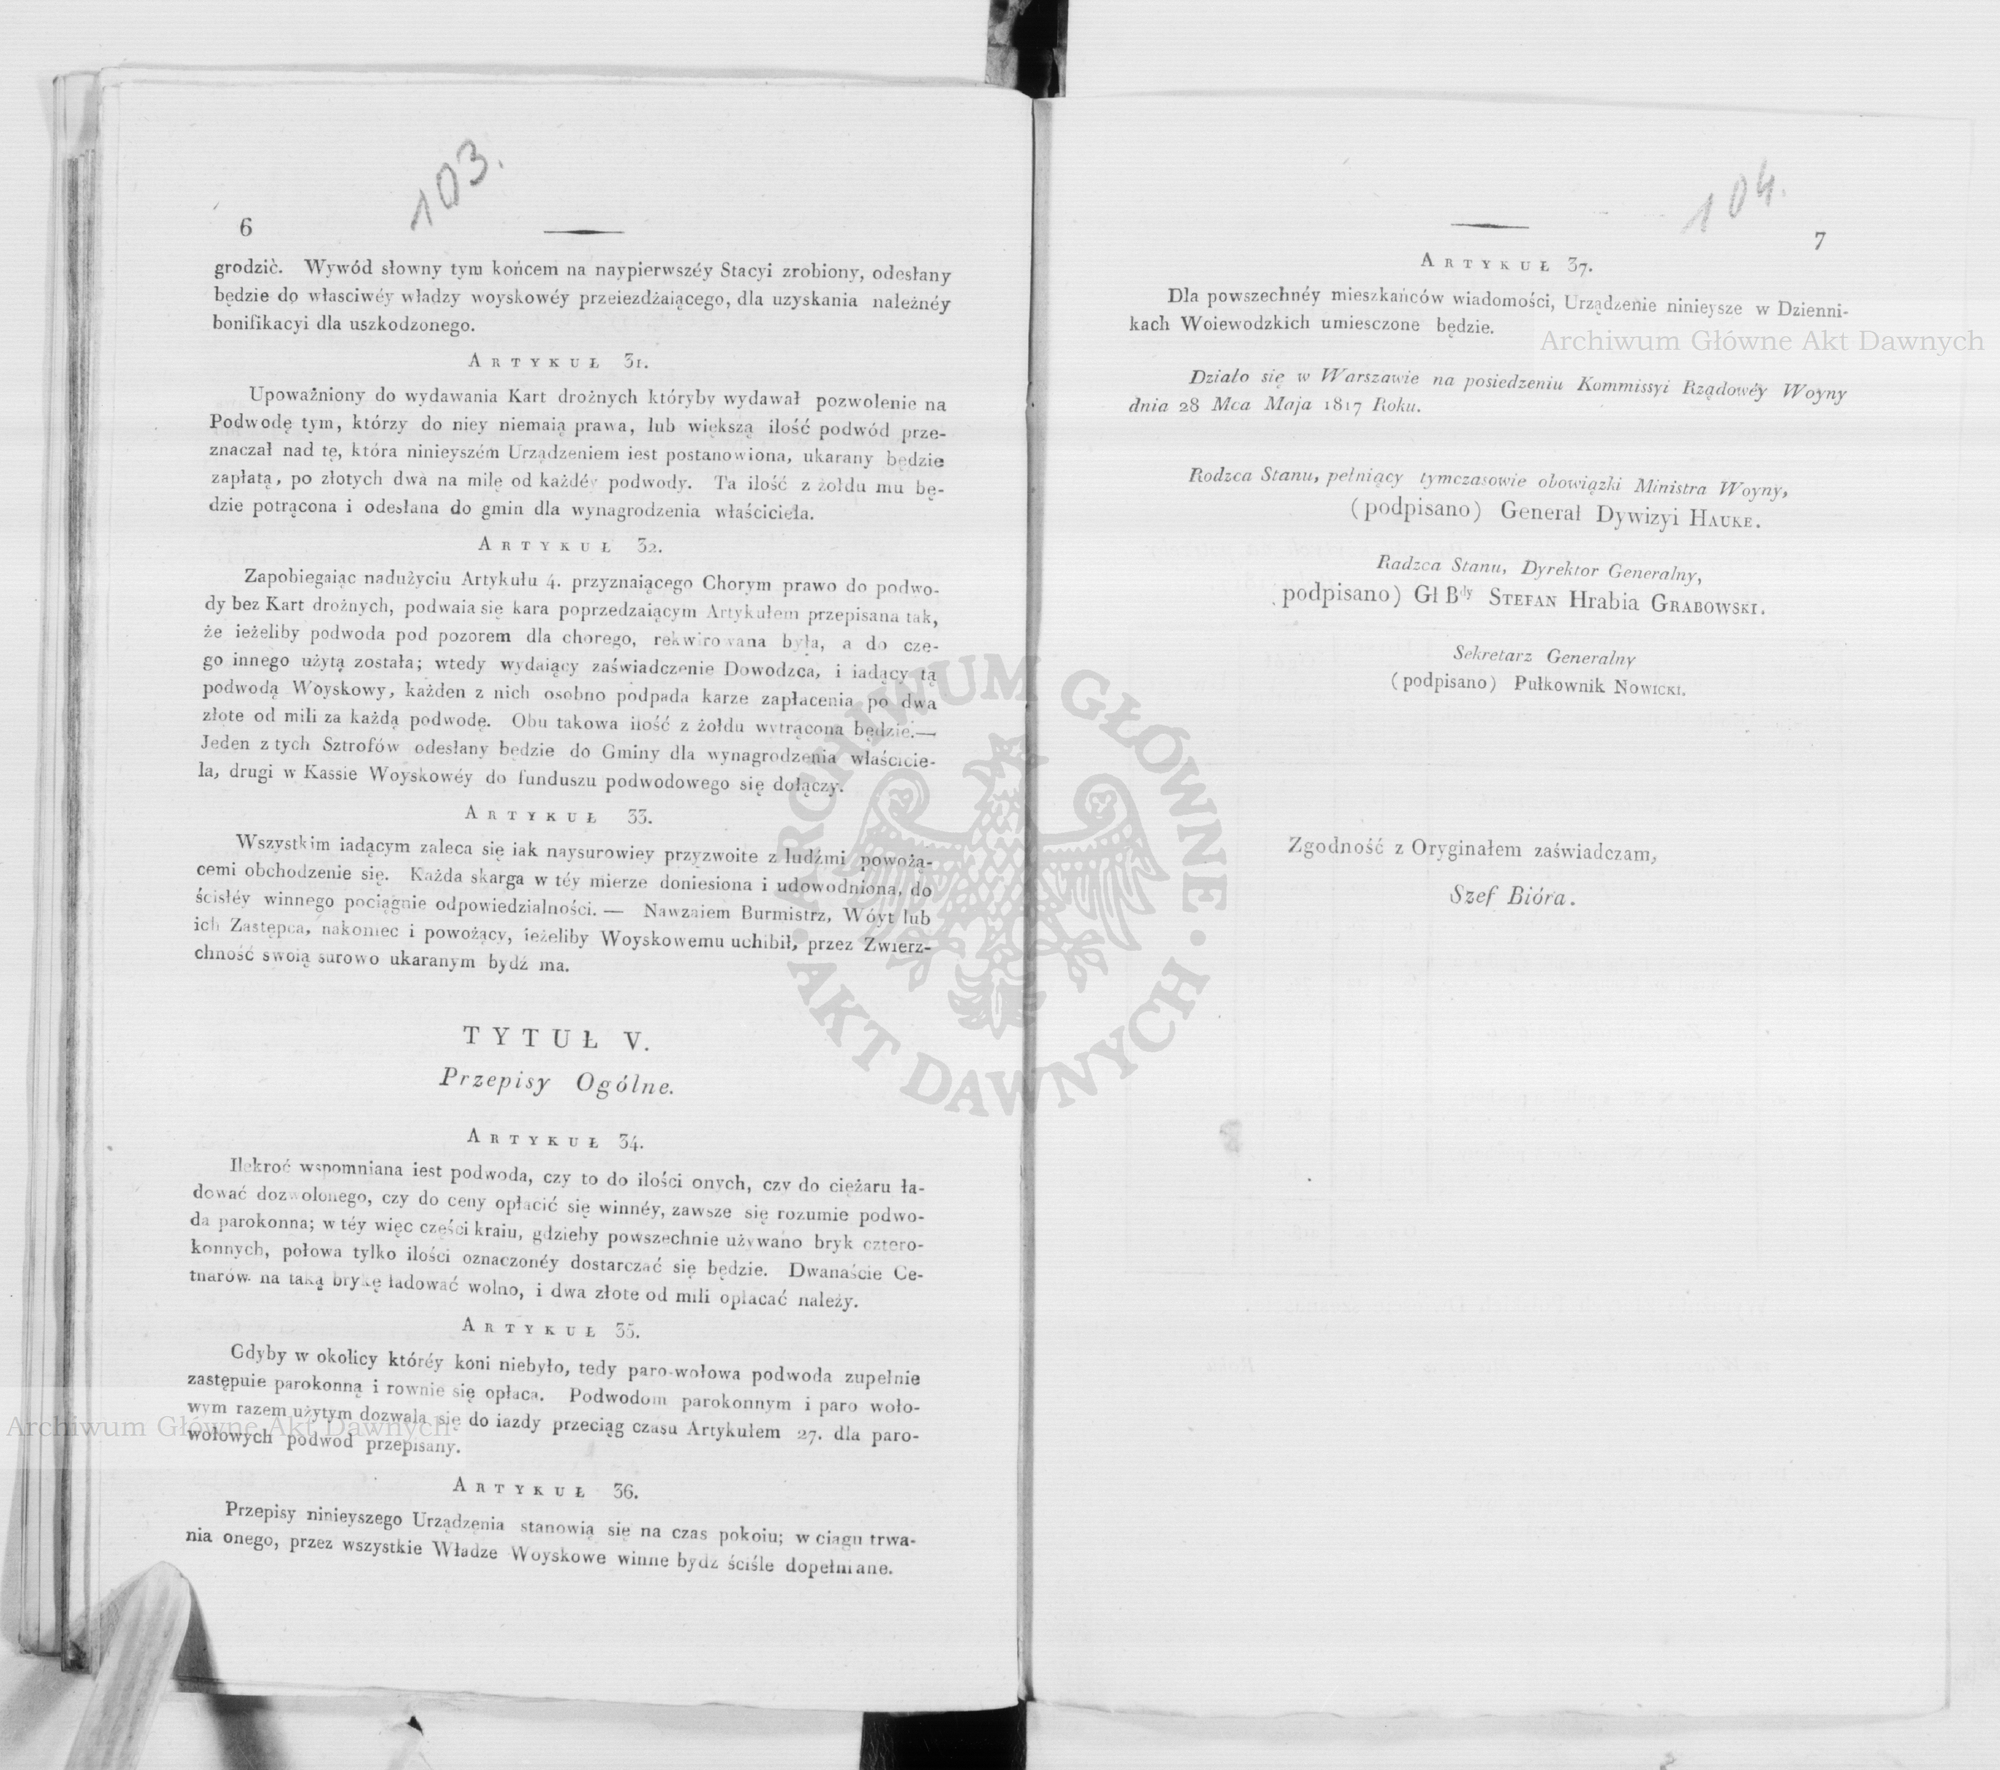 103.
6
grodzić. Wywód słowny tym końcem na naypierwszéy Stacyi zrobiony, odesłany
będzie do własciwéy władzy woyskowéy przeiezdżaiącego, dla uzyskania należnéy
bonifikacyi dla uszkodzonego.
Artykuł 31.
Upoważniony do wydawania Kart drożnych któryby wydawał pozwolenie na
Podwodę tym, którzy do niey niemaią prawa, lub większą ilość podwód prze-
znaczał nad tę, która ninieyszém Urządzeniem iest postanowiona, ukarany będzie
zapłatą, po złotych dwa na milę od każdéy podwody. Ta ilość z żołdu mu bę-
dzie potrącona i odesłana do gmin dla wynagrodzenia właściciela.
Artykuł 32.
Zapobiegaiąc nadużyciu Artykułu 4. przyznaiącego Chorym prawo do podwo-
dy bez Kart drożnych, podwaia się kara poprzedzaiącym Artykułem przepisana tak,
że ieżeliby podwoda pod pozorem dla chorego, rekwirowana była, a do cze-
go innego użytą została; wtedy wydaiący zaświadczenie Dowodzca, i iadący tą
podwodą Woyskowy, każden z nich osobno podpada karze zapłacenia po dwa
złote od mili za każdą podwodę. Obu takowa ilość z żołdu wytrącona będzie.—
Jeden z tych Sztrofów odesłany będzie do Gminy dla wynagrodzenia właścicie-
la, drugi w Kassie Woyskowéy do funduszu podwodowego się dołączy.
Artykuł 33.
Wszystkim iadącym zaleca się iak naysurowiey przyzwoite z ludźmi powożą-
cemi obchodzenie się. Każda skarga w téy mierze doniesiona i udowodniona, do
ścisłéy winnego pociągnie odpowiedzialności. — Nawzaiem Burmistrz, Wóyt lub
ich Zastępca, nakoniec i powożący, ieżeliby Woyskowemu uchibił, przez Zwierz-
chność swoią surowo ukaranym bydź ma.
TYTUŁ V.
Przepisy Ogólne.
Artykuł 34.
Ilekroć wspomniana iest podwoda, czy to do ilości onych, czy do ciężaru ła-
dować dozwolonego, czy do ceny opłacić się winnéy, zawsze się rozumie podwo-
da parokonna; w téy więc części kraiu, gdzieby powszechnie używano bryk cztero-
konnych, połowa tylko ilości oznaczonéy dostarczać się będzie. Dwanaście Ce-
tnarów na taką brykę ładować wolno, i dwa złote od mili opłacać należy.
Artykuł 35.
Gdyby w okolicy któréy koni niebyło, tedy paro-wołowa podwoda zupełnie
zastępuie parokonną i rownie się opłaca. Podwodom parokonnym i paro woło-
wym razem użytym dozwala się do iazdy przeciąg czasu Artykułem 27. dla paro-
wołowych podwod przepisany.
Artykuł 36.
Przepisy ninieyszego Urządzenia stanowią się na czas pokoiu; w ciągu trwa-
nia onego, przez wszystkie Władze Woyskowe winne bydz ściśle dopełniane.
104.
7
Artykuł 37.
Dla powszechnéy mieszkańców wiadomości, Urządzenie ninieysze w Dzienni-
kach Woiewodzkich umiesczone będzie.
Działo się w Warszawie na posiedzeniu Kommissyi Rządowéy Woyny
dnia 28 Mca Maja 1817 Roku.
Rodzca Stanu, pełniący tymczasowie obowiązki Ministra Woyny,
(podpisano) Generał Dywizyi Hauke.
Radzca Stanu, Dyrektor Generalny,
podpisano) Gł Bdy Stefan Hrabia Grabowski.
Sekretarz Generalny
(podpisano) Pułkownik Nowicki.
Zgodność z Oryginałem zaświadczam,
Szef Bióra.
Archiwum Główne Akt Dawnych
ARCHIWUM GŁÓWNE • AKT DAWNYCH •
Archiwum Główne Akt Dawnych